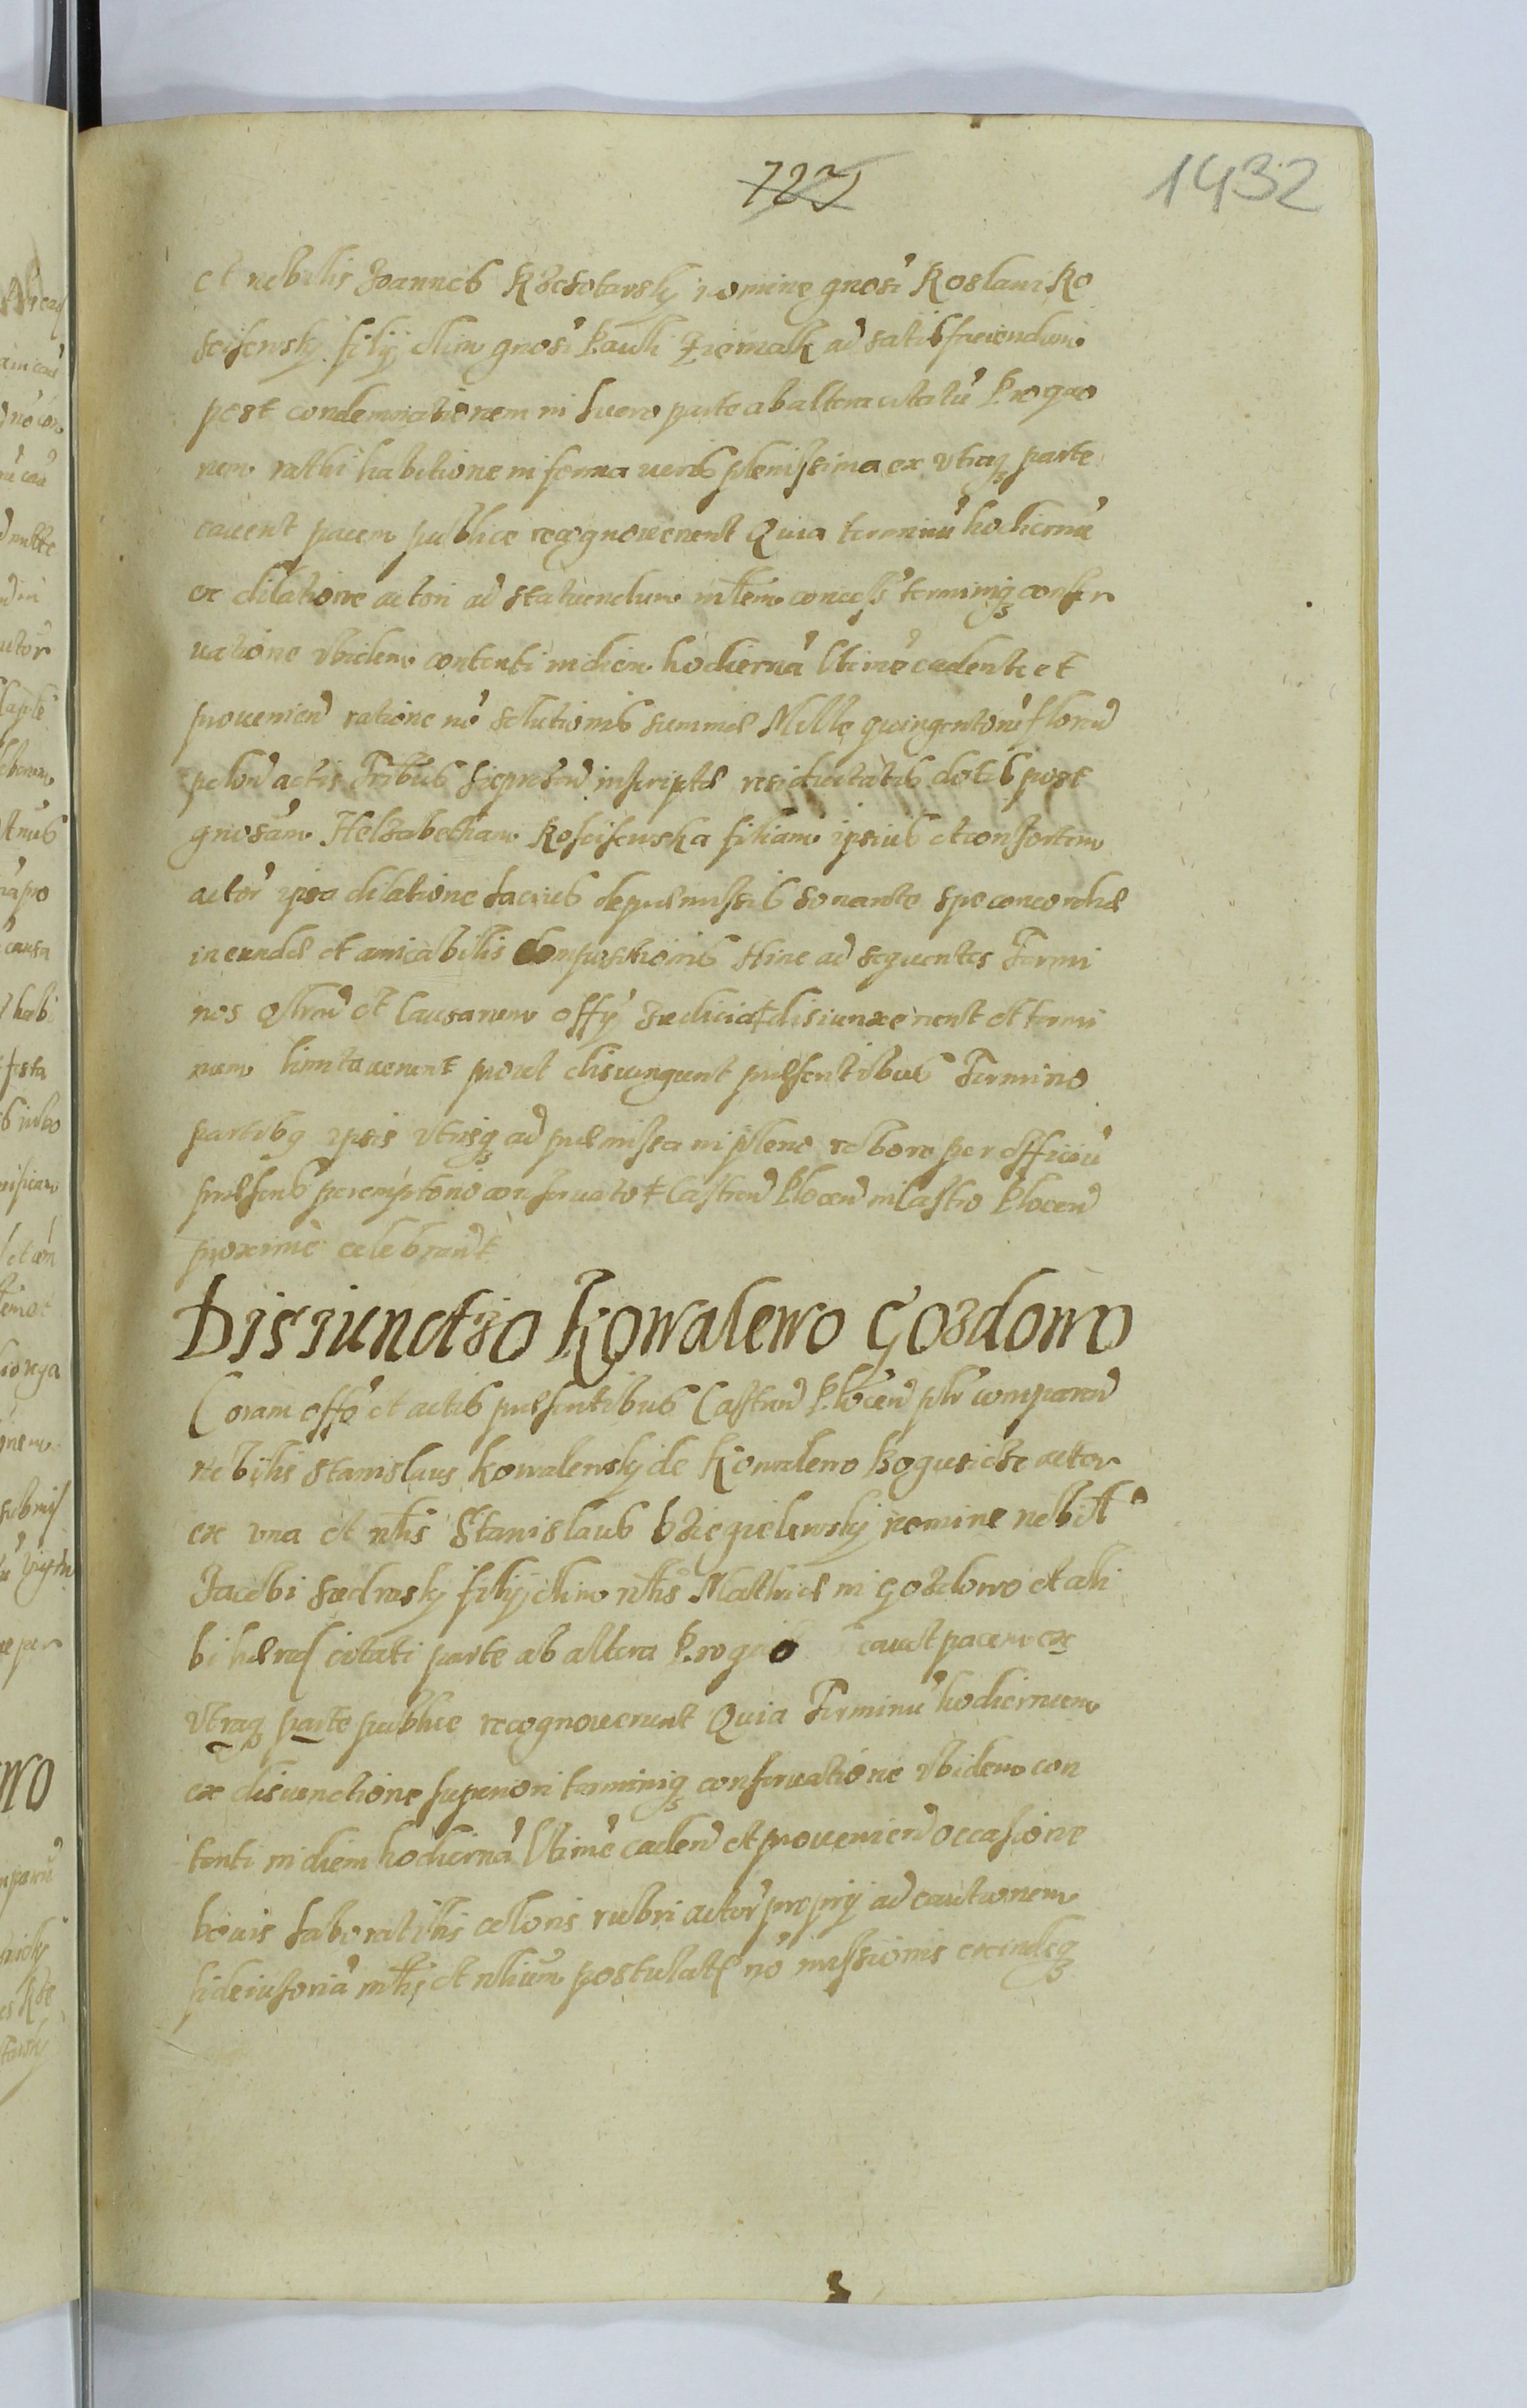 727
1432
et nobilis Joannes Krzesotarsky nomine gnosi Roslani Ko
scisewsky filij olim gnosi Pauli Ziemak ad satisfaciendum
post condemnationem in lucro parte ab altera citatũ Pro quo
rum rathi habitione in forma iuris plenissima ex vtraq parte
cauent pacem publice recognouerunt Quia terminũ hodiernũ
ex dilatione actori ad statuendum mtem concess terminiq conser
uatione ibidem contenti in diem hodiernã ltime cadente et
prouenien ratione nõ solutionis summæ Mille quingentorũ floren
polon actis Tribus inscriptæ residuitatis dotis post
gnosam Helzabetham Kosciszewska filiam ipsius et consortem
actor ipsa dilatione lacius de præmissis sonante spe concordiæ
ineundæ et amicabilis compositionis Hinc ad sequentes Termi
nos et Causarum offÿ Judicia disiunxerunt et termi
num limitauerunt prout disiungunt præsentibus Termino
partibq ipsis vtrisq ad præmissa in pleno robore per officiũ
præsens peremptorie conseruato Castren Plocen in Castro Plocen
proxime celebrand
Disiunctio Kowalewo Gozdowo
Coram offo et actis præsentibus Castren Plocen plr comparen
Nobilis Stanislaus Kowalewsky de Kowalewo Bogusicze actor
ex vna et nlis Stanislaus Dziegielewsky nomine nobil
Jacobi filij olim nlis Mathiæ in Gozdowo et ali
bi hæred citati parte ab altera Pro quo cauet pacem ex
vtraq parte publice recognouerunt Quia Terminũ hodiernum
ex disiunctione superiori terminiq conseruatione ibidem con
tenti in diem hodiernã ltime caden et prouenien occasione
bouis laboratilis coloris rubri actor proprij ad cautionem
fideiusoriã mtis et nlium postulat nõ missionis exindeq